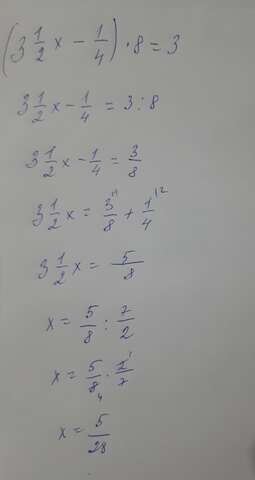 (3 1/2 x - 1/4) · 8 = 3
3 1/2 x - 1/4 = 3 : 8
3 1/2 x - 1/4 = 3/8
3 1/2 x = 3/8 ⁽¹ + 1/4 ⁽²
3 1/2 x = 5/8
x = 5/8 : 7/2
x = 5/8 ₄ · 2/7 ¹
x = 5/28